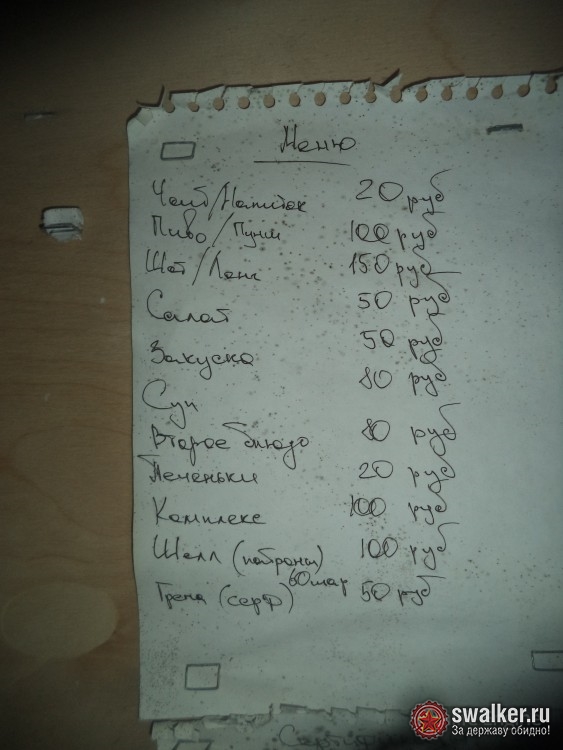 Меню
Чай/Напиток 20 руб
Пиво/Пунш 100 руб
Шот/Лонг 150 руб
Салат 50 руб
Закуска 50 руб
Суп 80 руб
Второе блюдо 80 руб
Печеньки 20 руб
Комплекс 100 руб
Шелл (патроны) 60 шар 100 руб
Грена (серф) 50 руб
swalker.ru
За державу обидно!